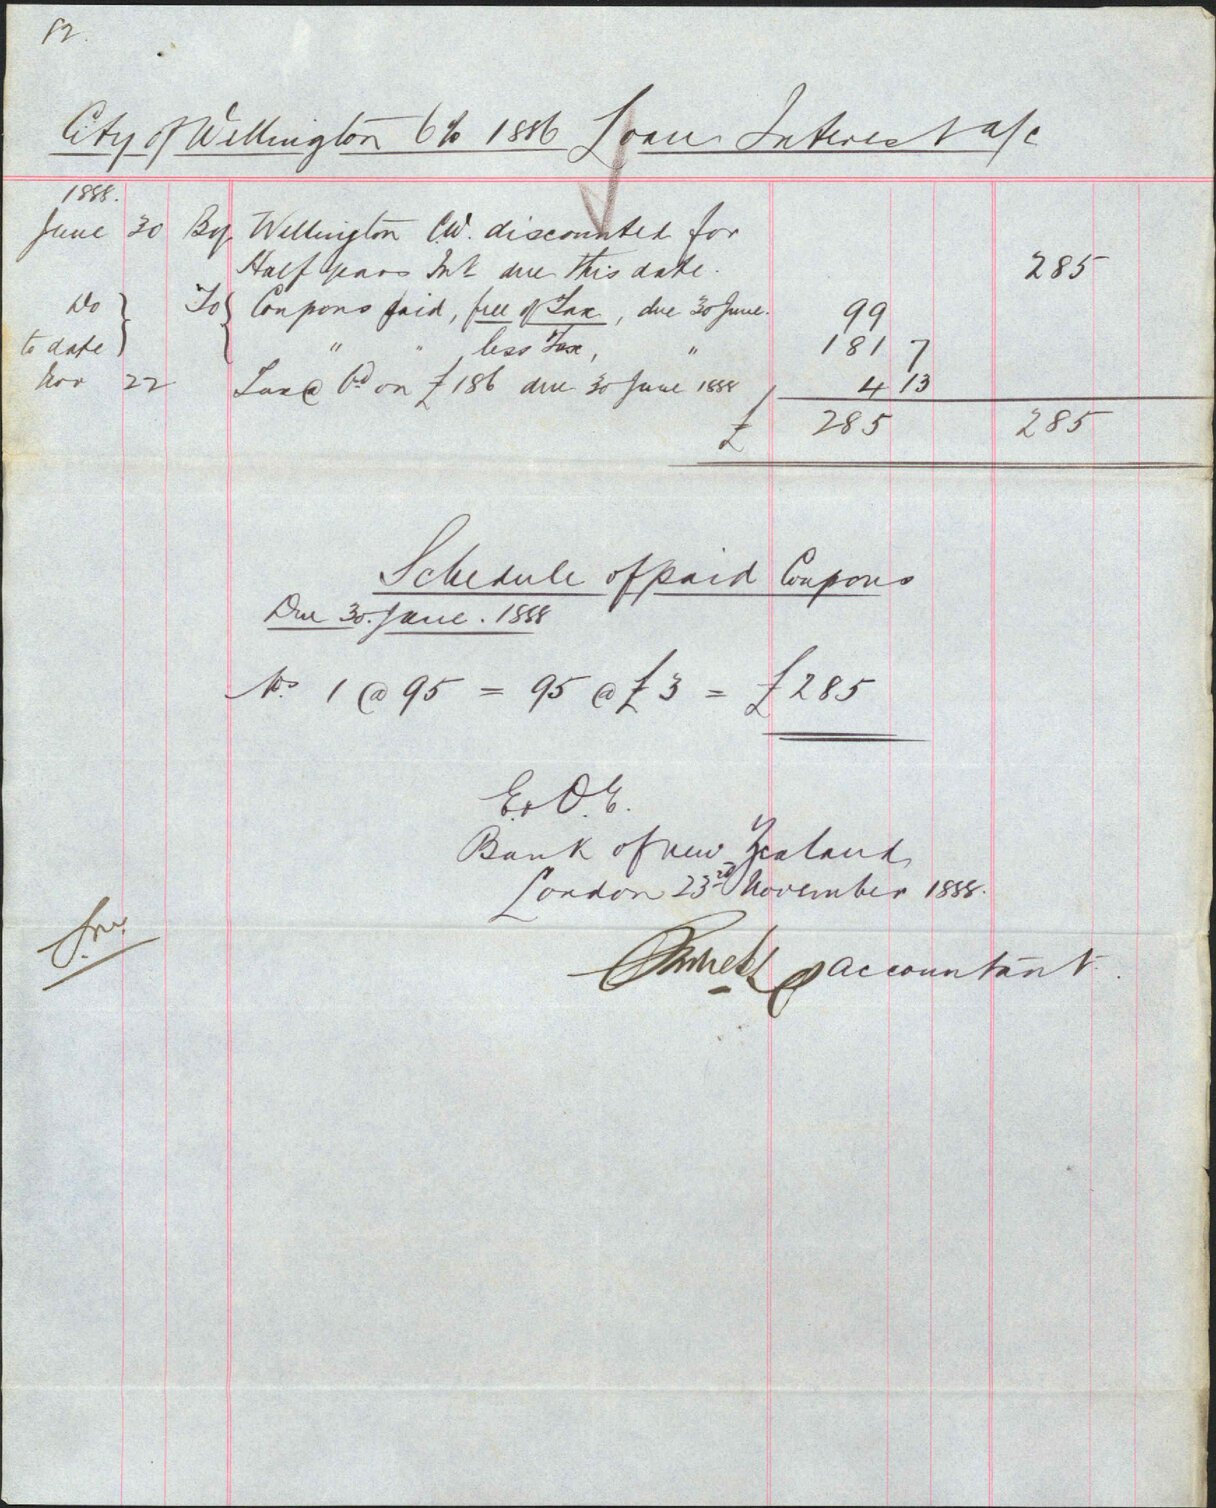 12.
City of Wellington 6% 1886 Loan Interest a/c
1888.
June 30 By Wellington C.W. discounted for
Half years Int due this date. 285
Do } To { Coupons paid, free of Tax, due 30 June. 99
to date } " " less Tax, " 181 7
Nov 22 Tax @ 6d on £186 due 30 June 1888 4 13
£ 285 285
Schedule of paid Coupons
Due 30. June. 1888
Nos 1 @ 95 = 95 @ £3 = £285
E. & O. E.
Bank of New Zealand
London 23rd November 1888.
Accountant.